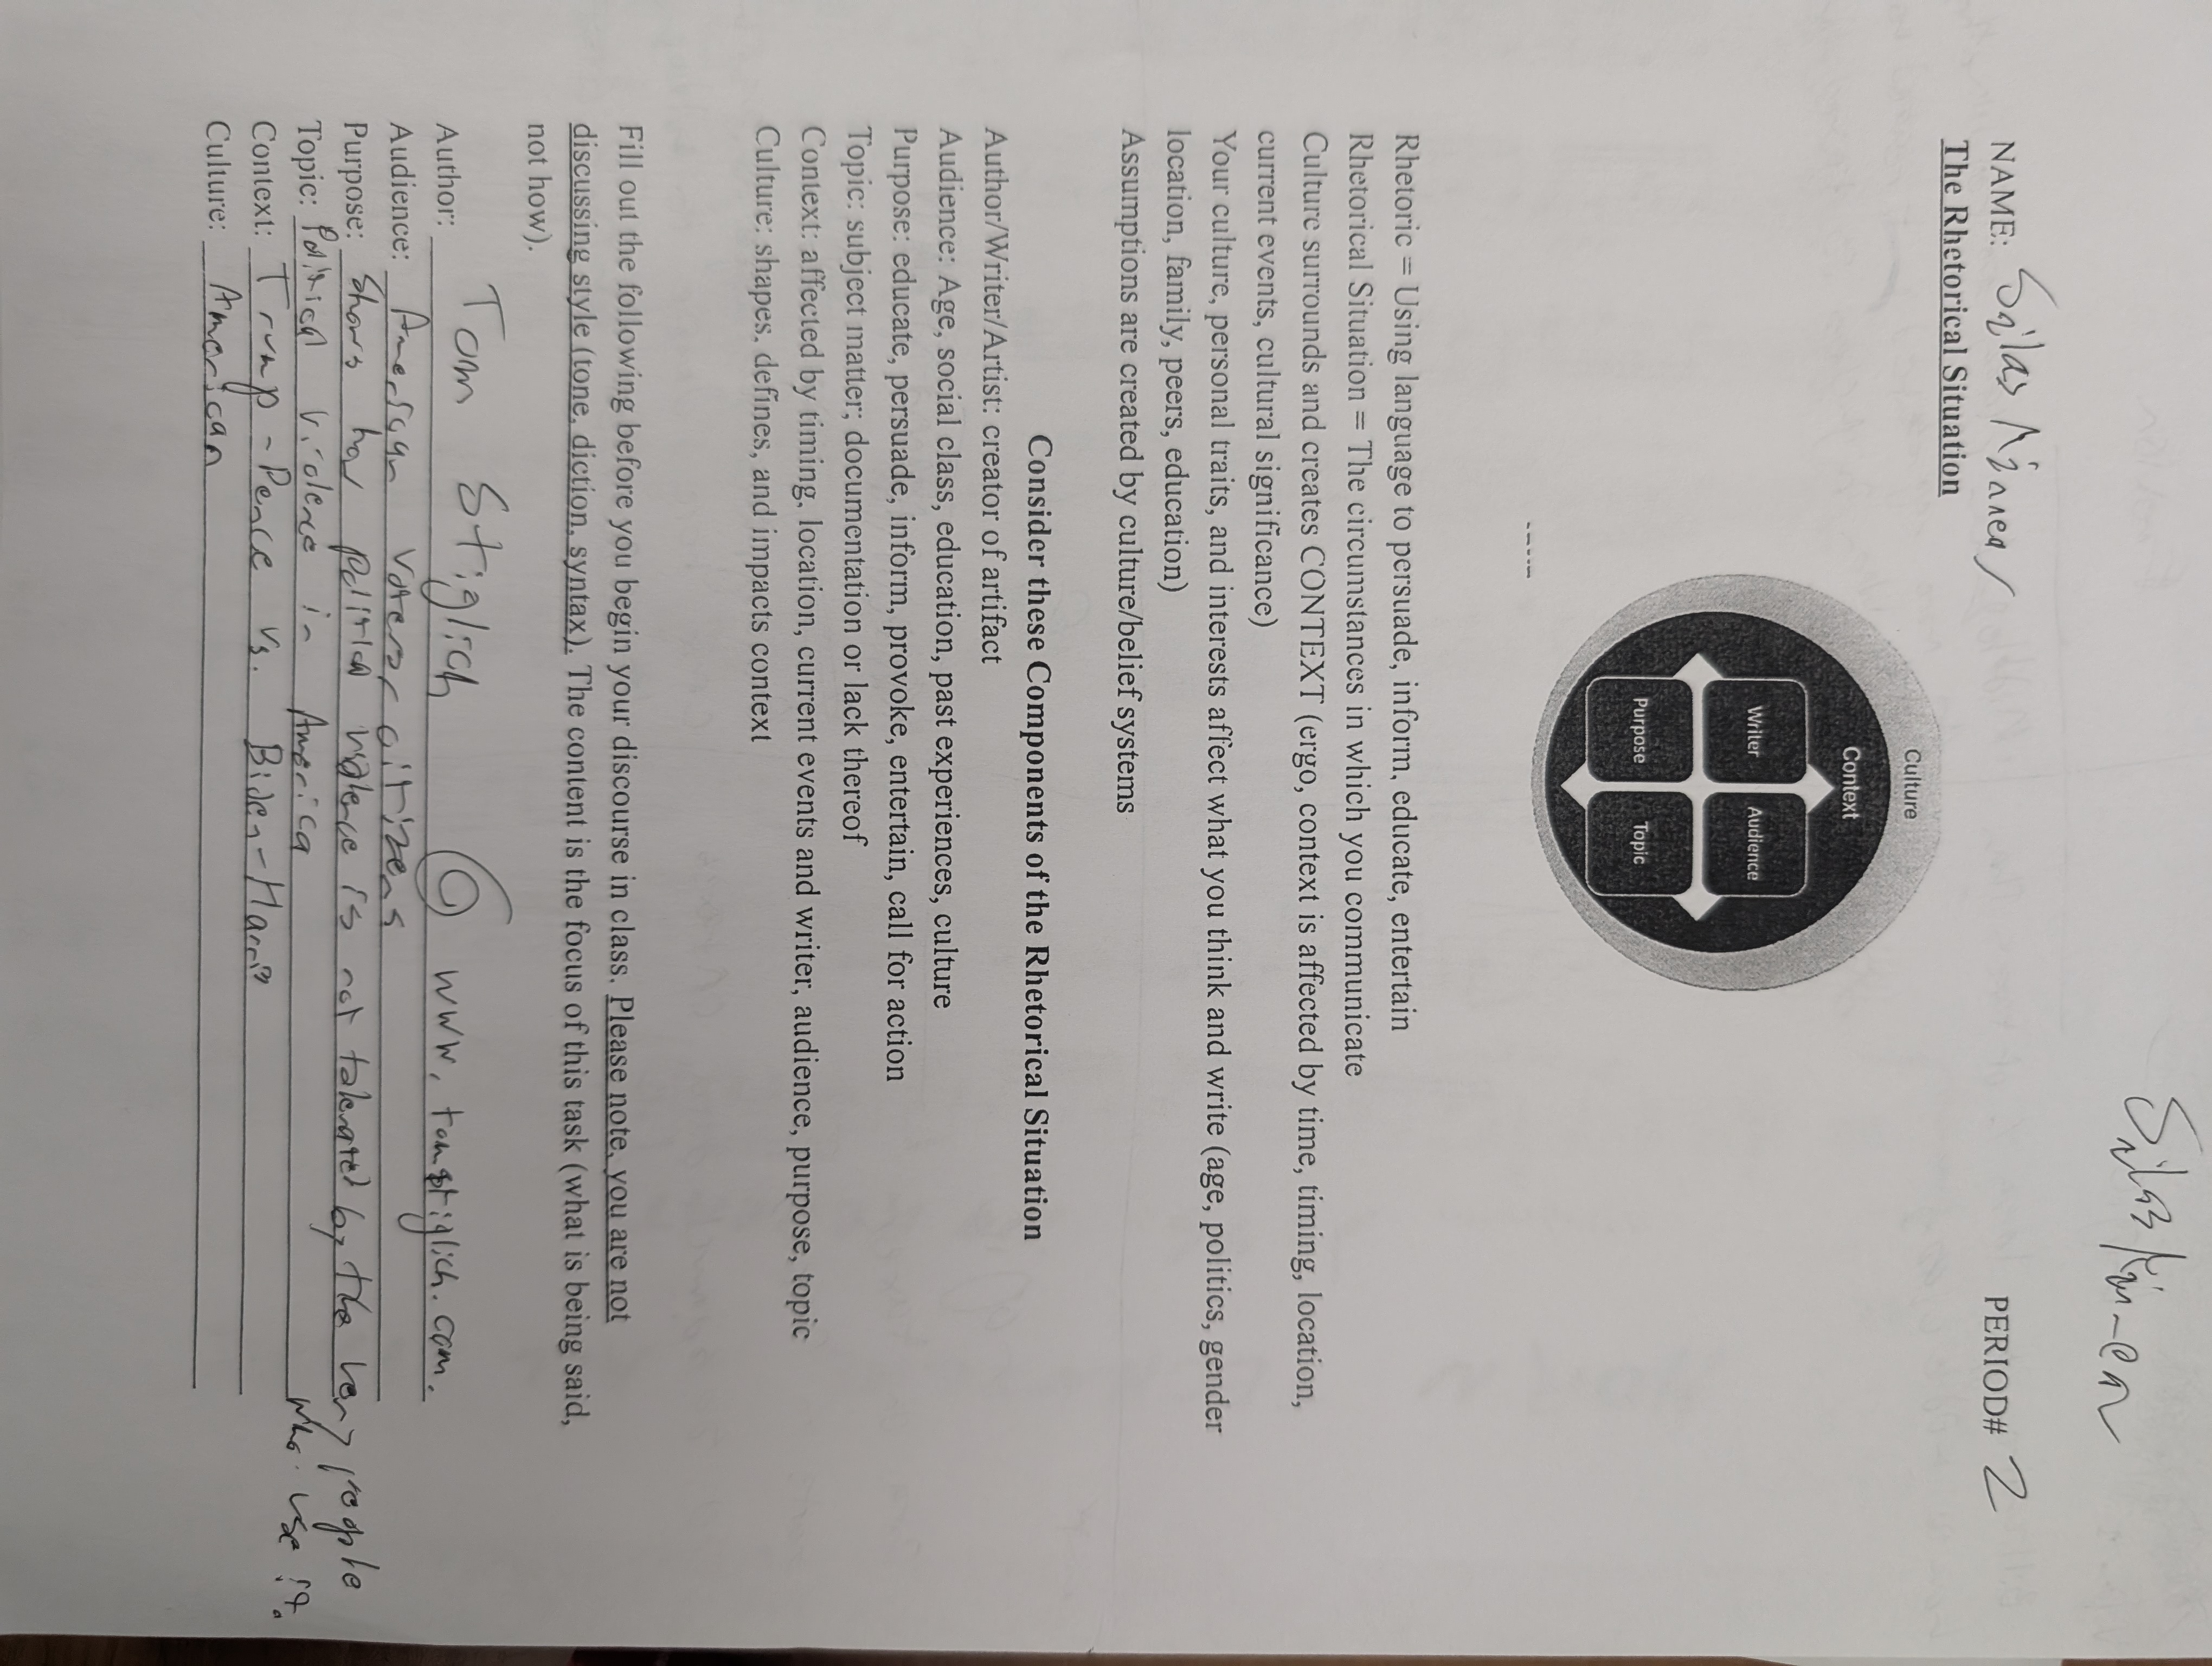 Silas
NAME: Silas Kinnear PERIOD# 2
The Rhetorical Situation
Culture
Context
Writer Audience
Purpose Topic
Rhetoric = Using language to persuade, inform, educate, entertain
Rhetorical Situation = The circumstances in which you communicate
Culture surrounds and creates CONTEXT (ergo, context is affected by time, timing, location,
current events, cultural significance)
Your culture, personal traits, and interests affect what you think and write (age, politics, gender
location, family, peers, education)
Assumptions are created by culture/belief systems
Consider these Components of the Rhetorical Situation
Author/Writer/Artist: creator of artifact
Audience: Age, social class, education, past experiences, culture
Purpose: educate, persuade, inform, provoke, entertain, call for action
Topic: subject matter; documentation or lack thereof
Context: affected by timing, location, current events and writer, audience, purpose, topic
Culture: shapes, defines, and impacts context
Fill out the following before you begin your discourse in class. Please note, you are not
discussing style (tone, diction, syntax). The content is the focus of this task (what is being said,
not how).
Author: Tom Stiglich © www.tomstiglich.com.
Audience: American voters, citizens
Purpose: Shows how political violence is not tolerated by the very people
who use it.
Topic: Political violence in America
Context: Trump-Pence vs. Biden-Harris
Culture: American